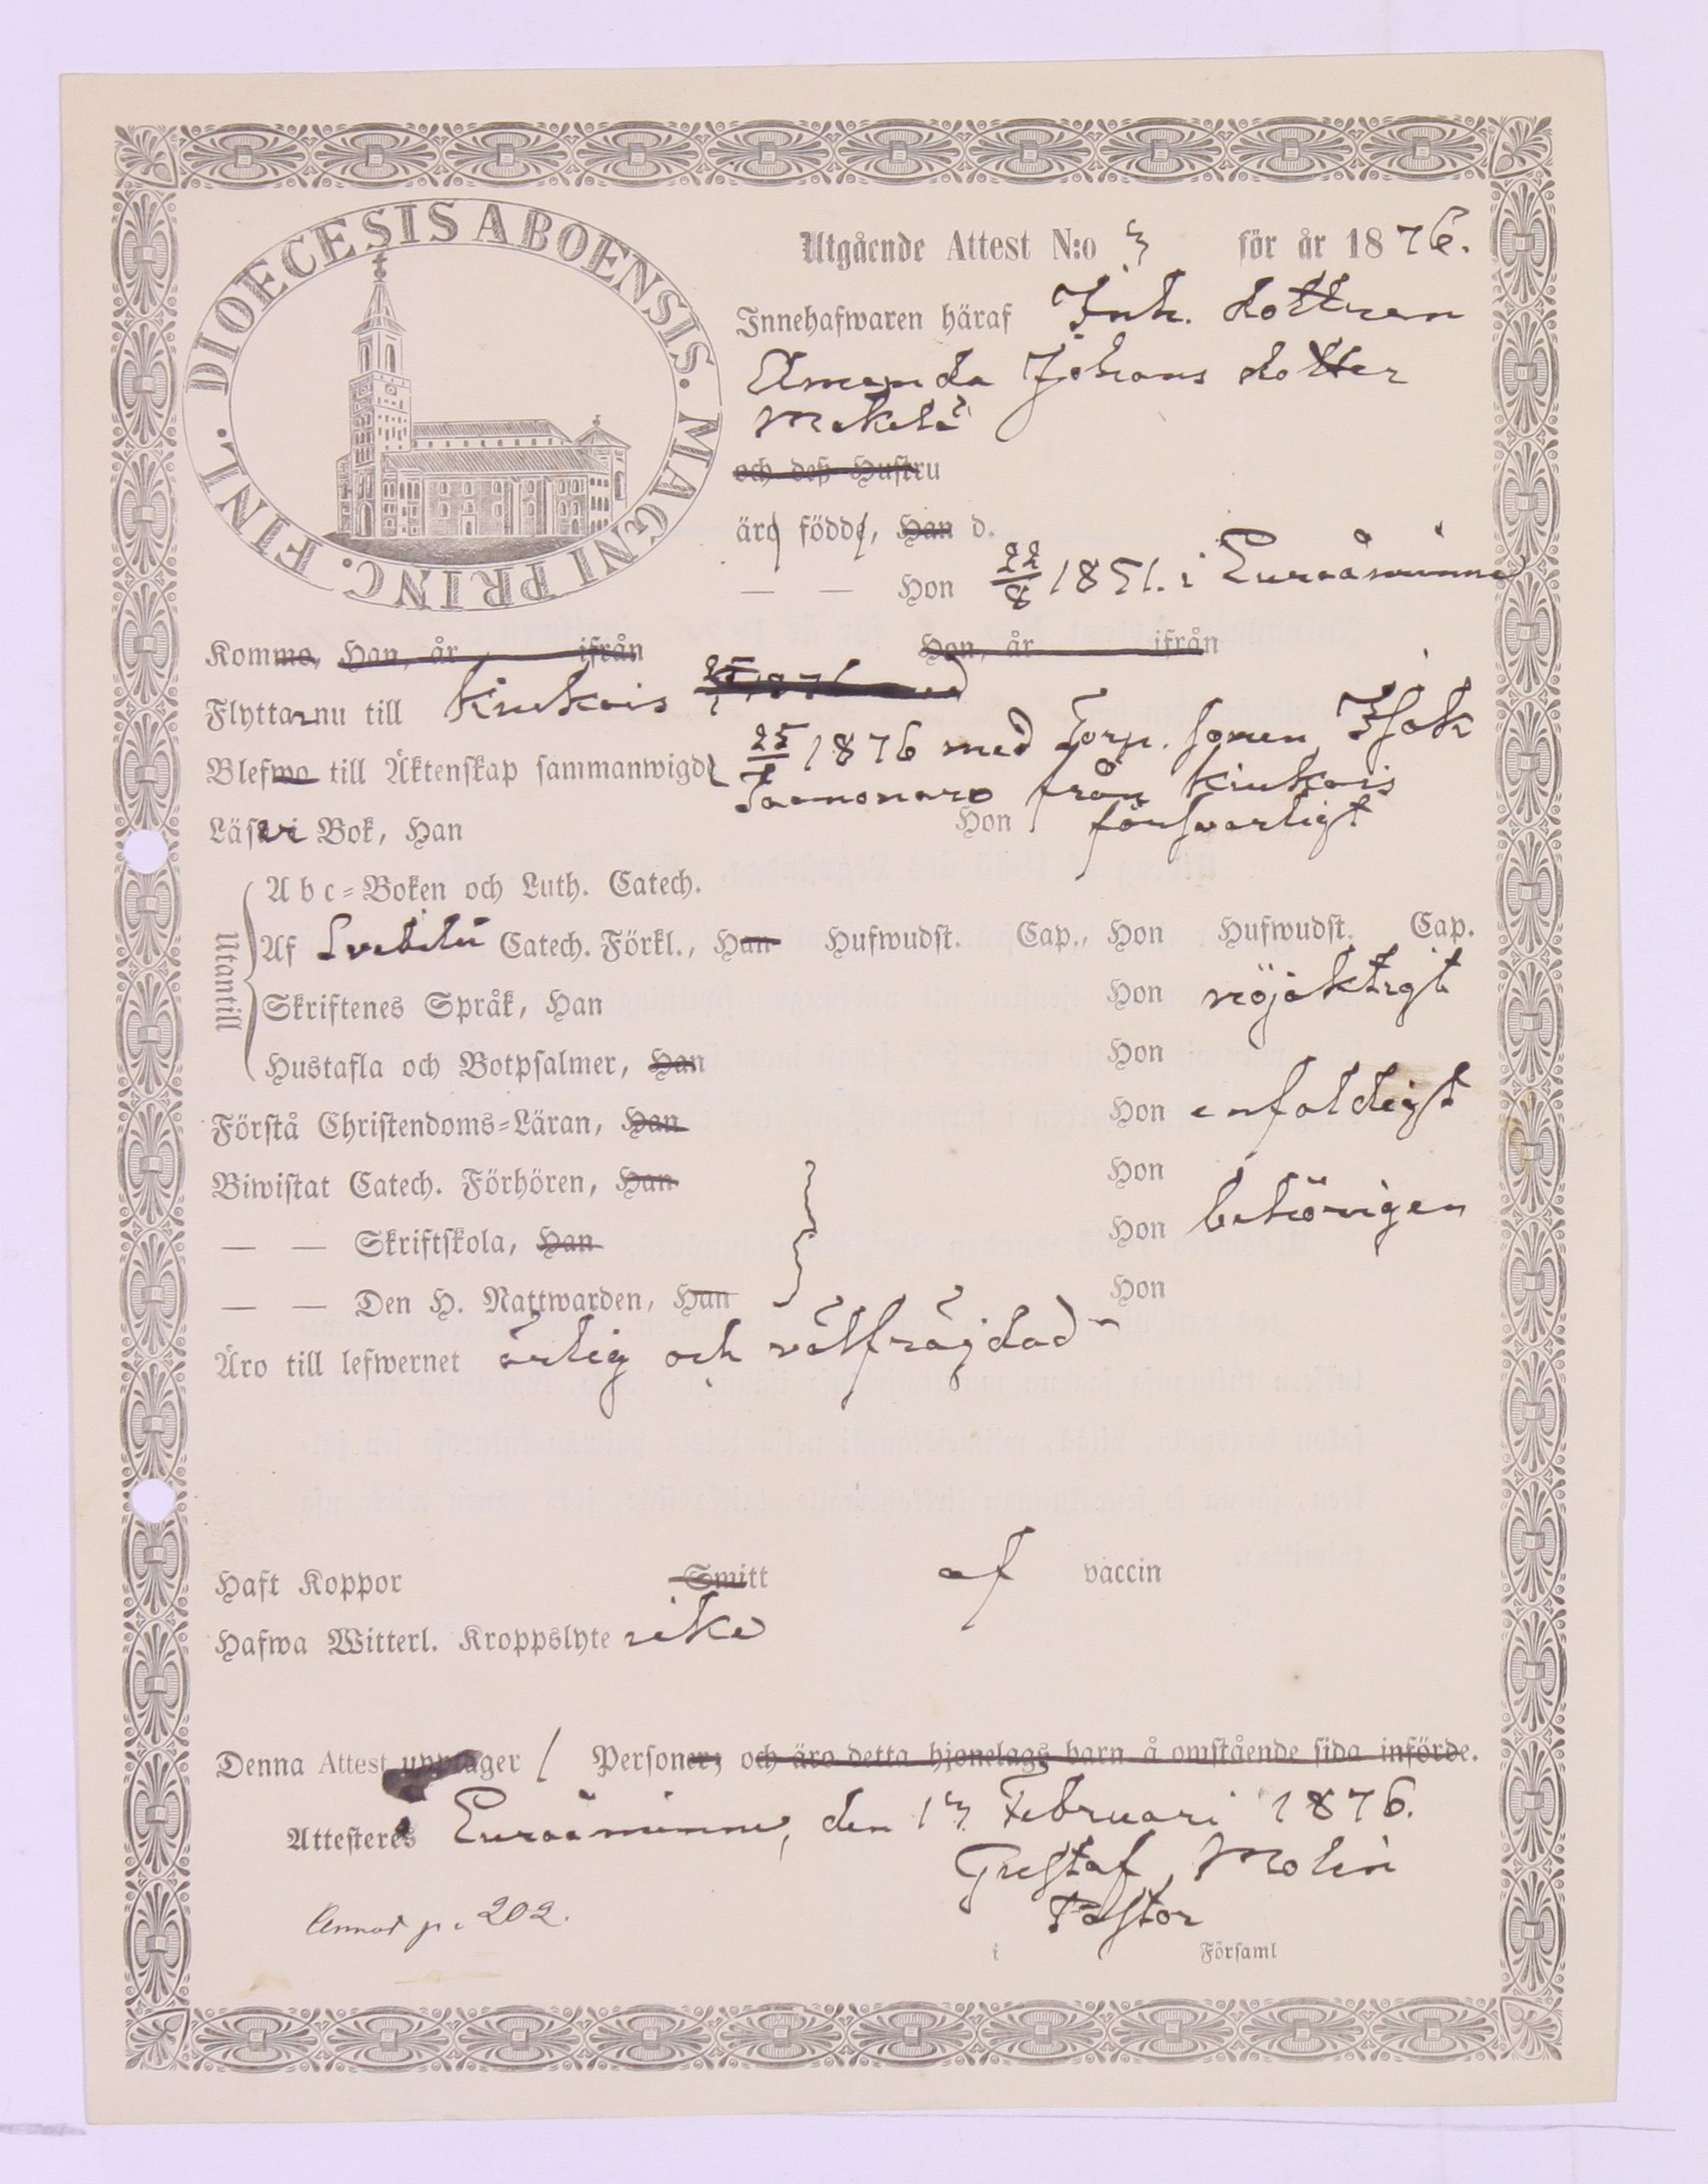 DIOECESIS ABOENSIS. MAGNI PRINC. FINL.
Utgående Attest N:o 3 för år 1876.
Innehafwaren häraf Inh. dottren
Amanda Johans dotter
Mäkelä
och deß Hustru
äro födde, Han d.
— — Hon 22/8 1851. i Euraåminne
Komma, Han, år ifrån Hon, år ifrån
Flyttar nu till Kiukais 25/1 1876 med
Blefwo till Äktenskap sammanwigde 25/1 1876 med Torp. sonen Isak
från Kiukais
Läser i Bok, Han Hon försvarligt
Utantill
Abc-Boken och Luth. Catech.
Af Svebilii Catech. Förkl., Han Hufwudst. Cap., Hon Hufwudst. Cap.
Skriftenes Språk, Han Hon nöjaktigt
Hustafla och Botpsalmer, Han Hon
Förstå Christendoms-Läran, Han Hon enfaldigt
Biwistat Catech. Förhören, Han Hon
— — Skriftskola, Han Hon behörigen
— — Den H. Nattwarden, Han Hon
Äro till lefwernet ärlig och välfrägdad
Haft Koppor Smitt af vaccin
Hafwa Witterl. Kroppslyte icke
Denna Attest upptager 1 Personer; och äro detta hjonelags barn å omstående sida införde.
Attesteres Euraåminne, den 13 Februari 1876.
Gustaf Molin
Pastor
i Församl
Annot. p. 202.